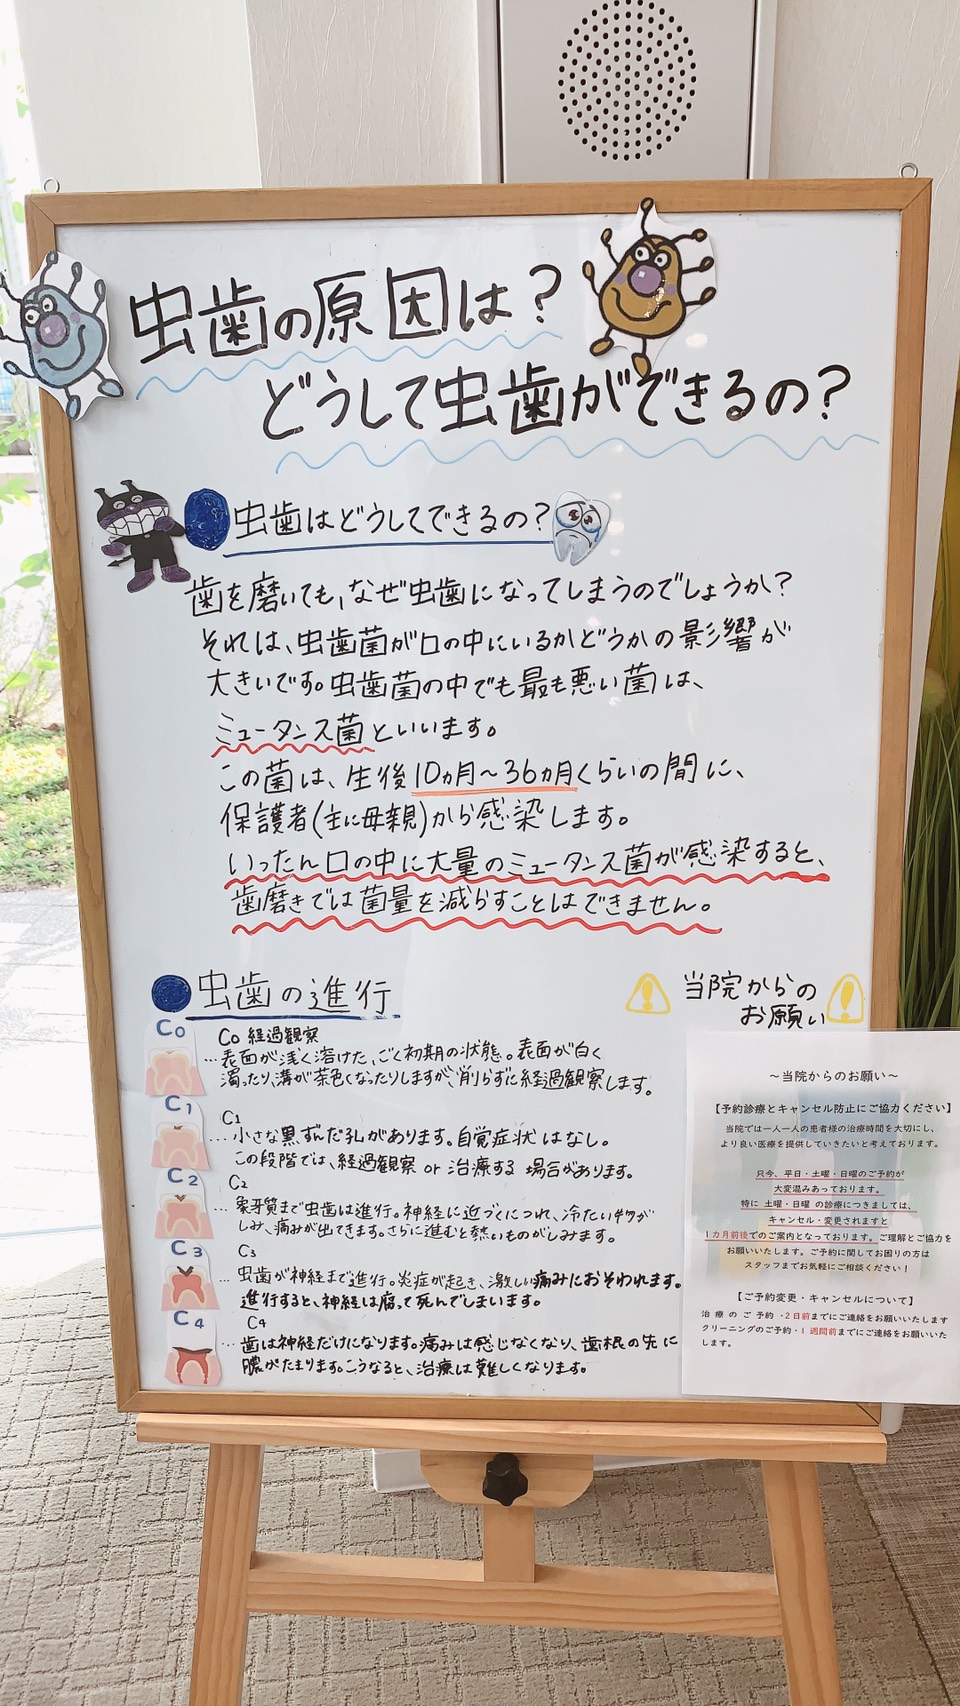 虫歯の原因は?
どうして虫歯ができるの?
虫歯はどうしてできるの?
歯を磨いても、なぜ虫歯になってしまうのでしょうか?
それは、虫歯菌が口の中にいるかどうかの影響が
大きいです。虫歯菌の中でも最も悪い菌は、
ミュータンス菌といいます。
この菌は、生後10ヵ月~36ヵ月くらいの間に、
保護者(主に母親)から感染します。
いったん口の中に大量のミュータンス菌が感染すると、
歯磨きでは菌量を減らすことはできません。
虫歯の進行
C0
C0 経過観察
…表面が浅く溶けた、ごく初期の状態。表面が白く
濁ったり、溝が茶色くなったりしますが、削らずに経過観察します。
C1
C1
…小さな黒ずんだ孔があります。自覚症状はなし。
この段階では、経過観察 or 治療する場合があります。
C2
C2
…象牙質まで虫歯は進行。神経に近づくにつれ、冷たい物が
しみ、痛みが出てきます。さらに進むと熱いものがしみます。
C3
C3
…虫歯が神経まで進行。炎症が起き、激しい痛みにおそわれます。
進行すると、神経は腐って死んでしまいます。
C4
C4
…歯は神経だけになります。痛みは感じなくなり、歯根の先に
膿がたまります。こうなると、治療は難しくなります。
当院からの
お願い
~当院からのお願い~
【予約診療とキャンセル防止にご協力ください】
当院では一人一人の患者様の治療時間を大切にし、
より良い医療を提供していきたいと考えております。
只今、平日・土曜・日曜のご予約が
大変混みあっております。
特に 土曜・日曜 の診療につきましては、
キャンセル・変更されますと
1カ月前後でのご案内となっております。ご理解とご協力を
お願いいたします。ご予約に関してお困りの方は
スタッフまでお気軽にご相談ください！
【ご予約変更・キャンセルについて】
治療のご予約・2日前までにご連絡をお願いいたします
クリーニングのご予約・1週間前までにご連絡をお願いいた
します。